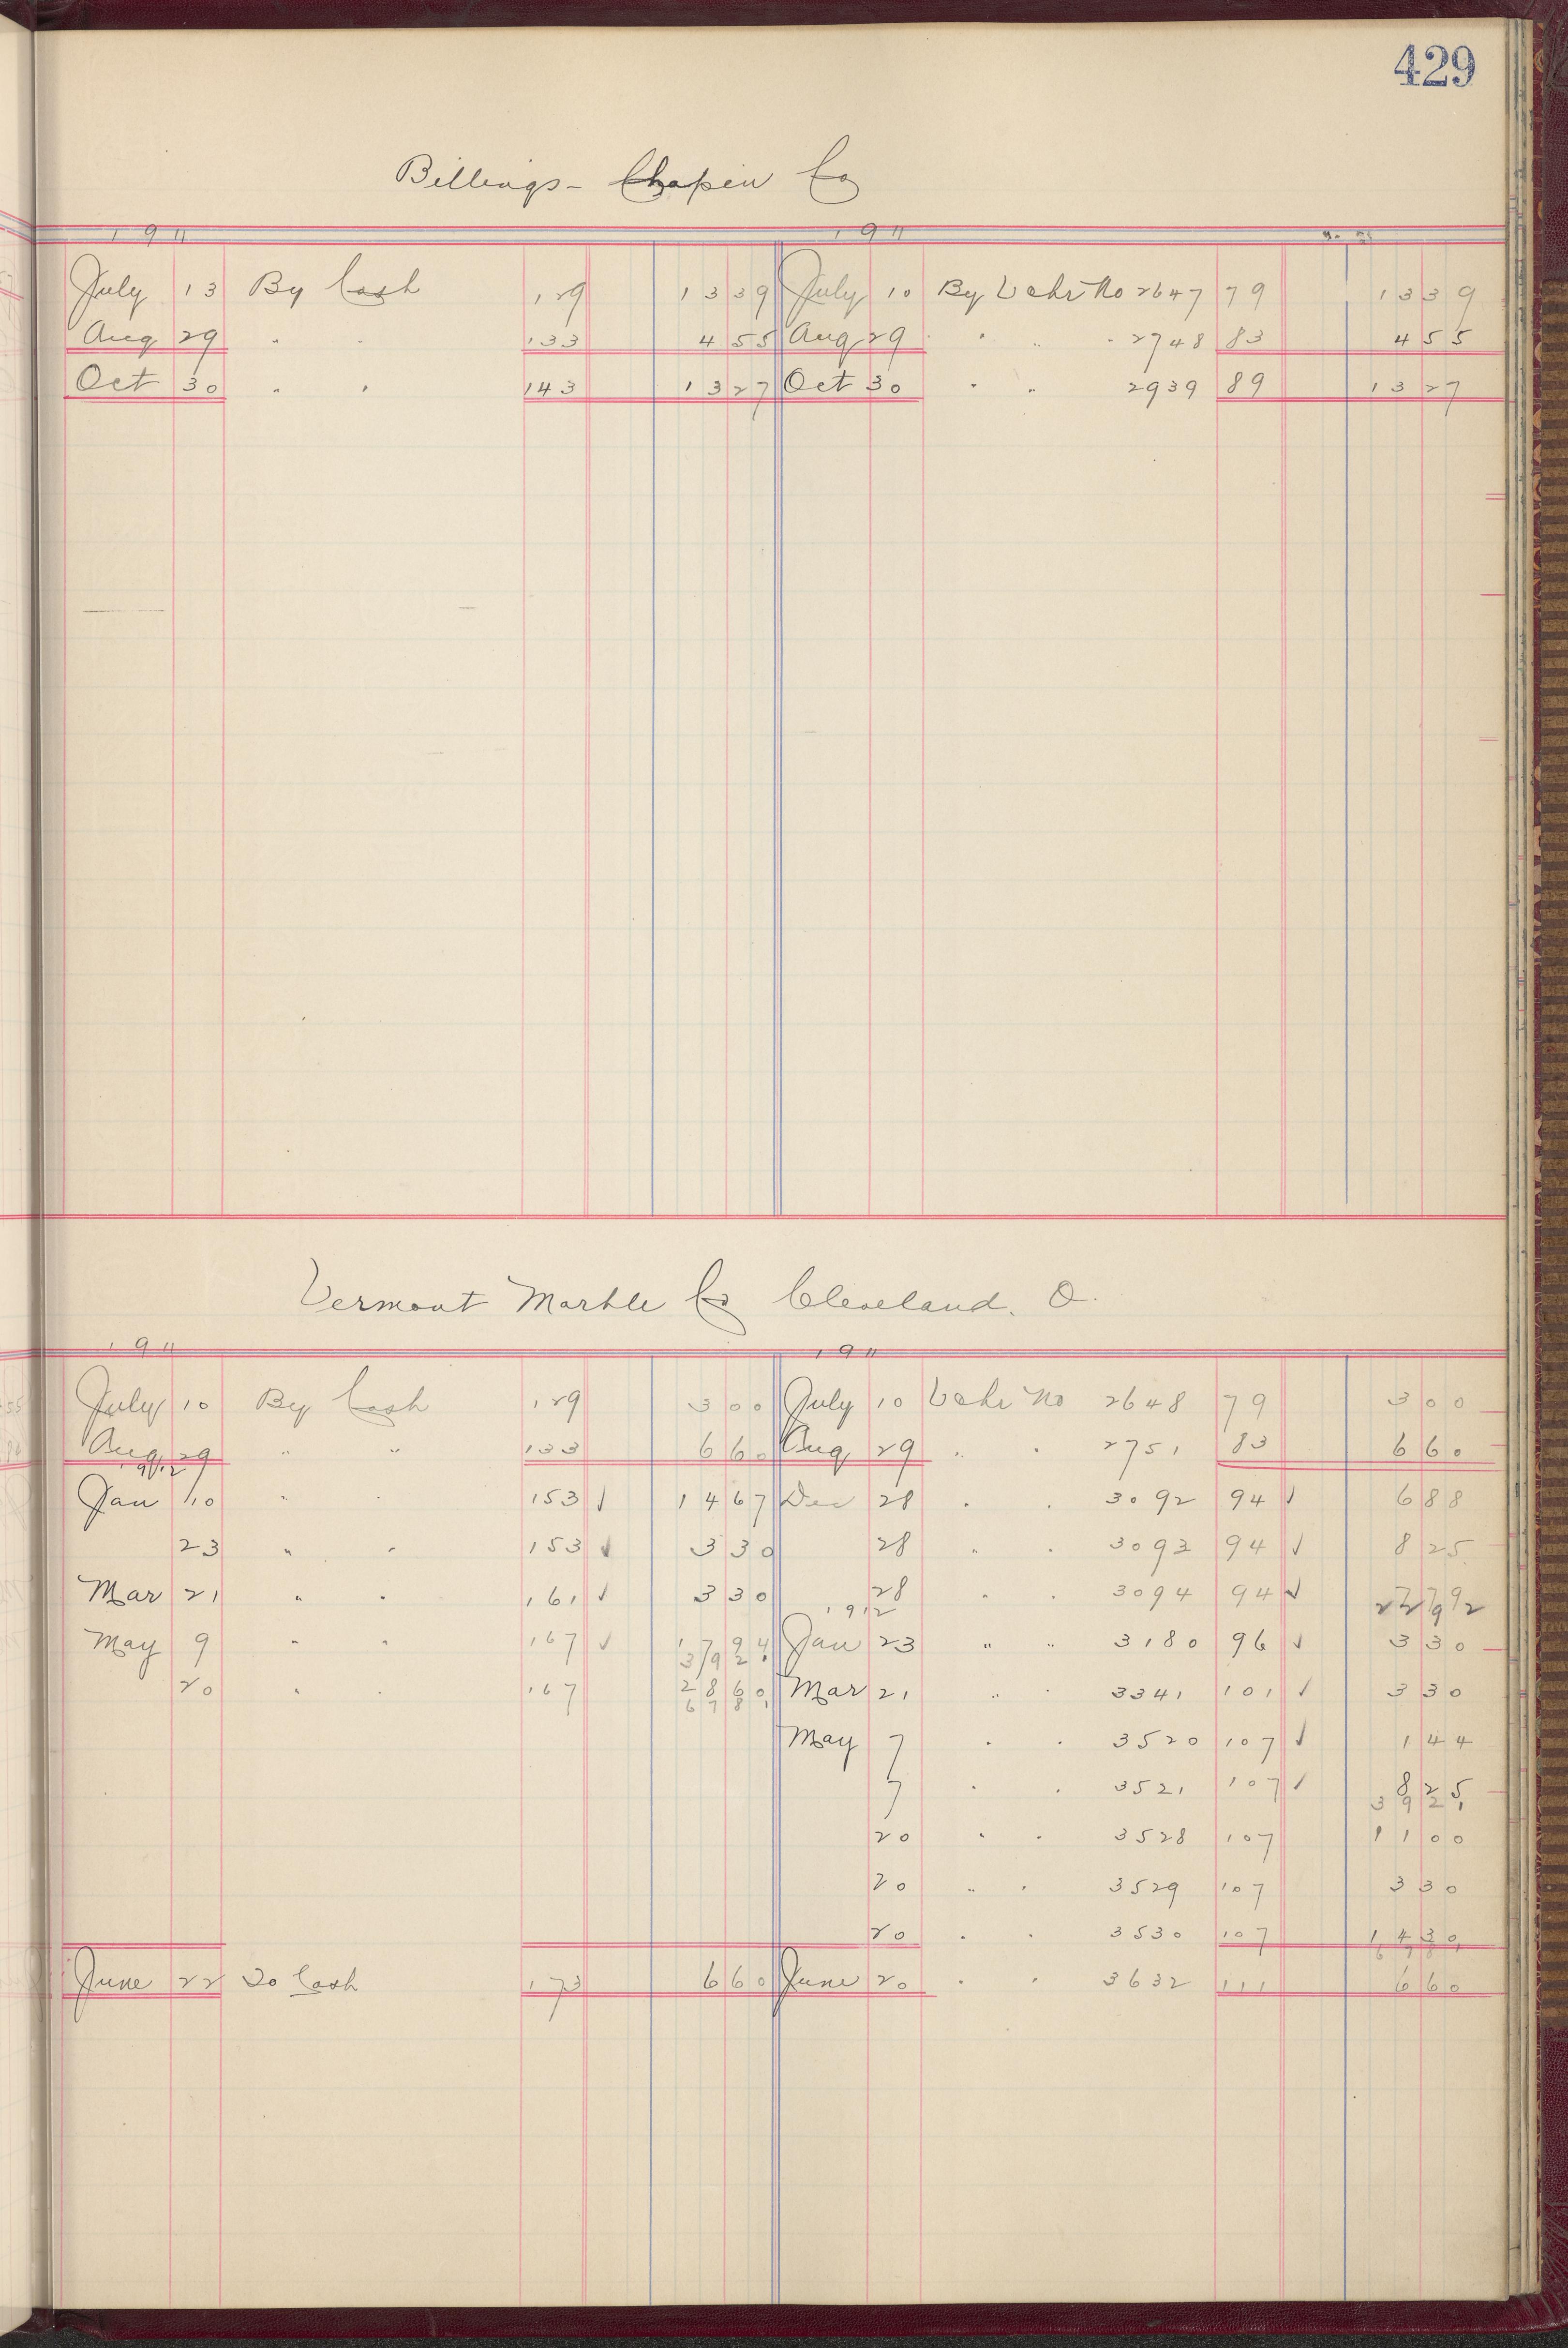 429
Billings - Chapin Co
1911 1911
July 13 By Cash 129 13 39 July 10 By Vchr No 2647 79 13 39
Aug 29 " " 133 4 55 Aug 29 " " " 2748 83 4 55
Oct 30 " " 143 13 27 Oct 30 " " 2939 89 13 27
Vermont Marble Co Cleveland. O.
1911 1911
July 10 By Cash 129 3 00 July 10 Vchr No 2648 79 3 00
Aug 29 " " 133 6 60 Aug 29 " " 2751 83 6 60
1912
Jan 10 " " 153 ✓ 14 67 Dec 28 " " 3092 94 ✓ 6 88
23 " " 153 ✓ 3 30 28 " " 3093 94 ✓ 8 25
Mar 21 " " 161 ✓ 3 30 28 " " 3094 94 ✓ 7 79
1912 22 92
May 9 " " 167 ✓ 17 94 Jan 23 " " 3180 96 ✓ 3 30
39 21
20 " " 167 28 60 Mar 21 " " 3341 101 ✓ 3 30
67 81
May 7 " " 3520 107 ✓ 1 44
7 " " 3521 107 ✓ 8 25
39 21
20 " " 3528 107 11 00
20 " " 3529 107 3 30
20 " " 3530 107 14 30
67 81
June 22 To Cash 173 6 60 June 20 " " 3632 111 6 60